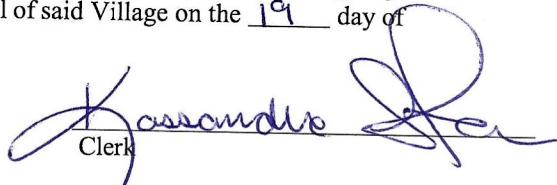 l of said Village on the 19 day of
Kassandra
Clerk